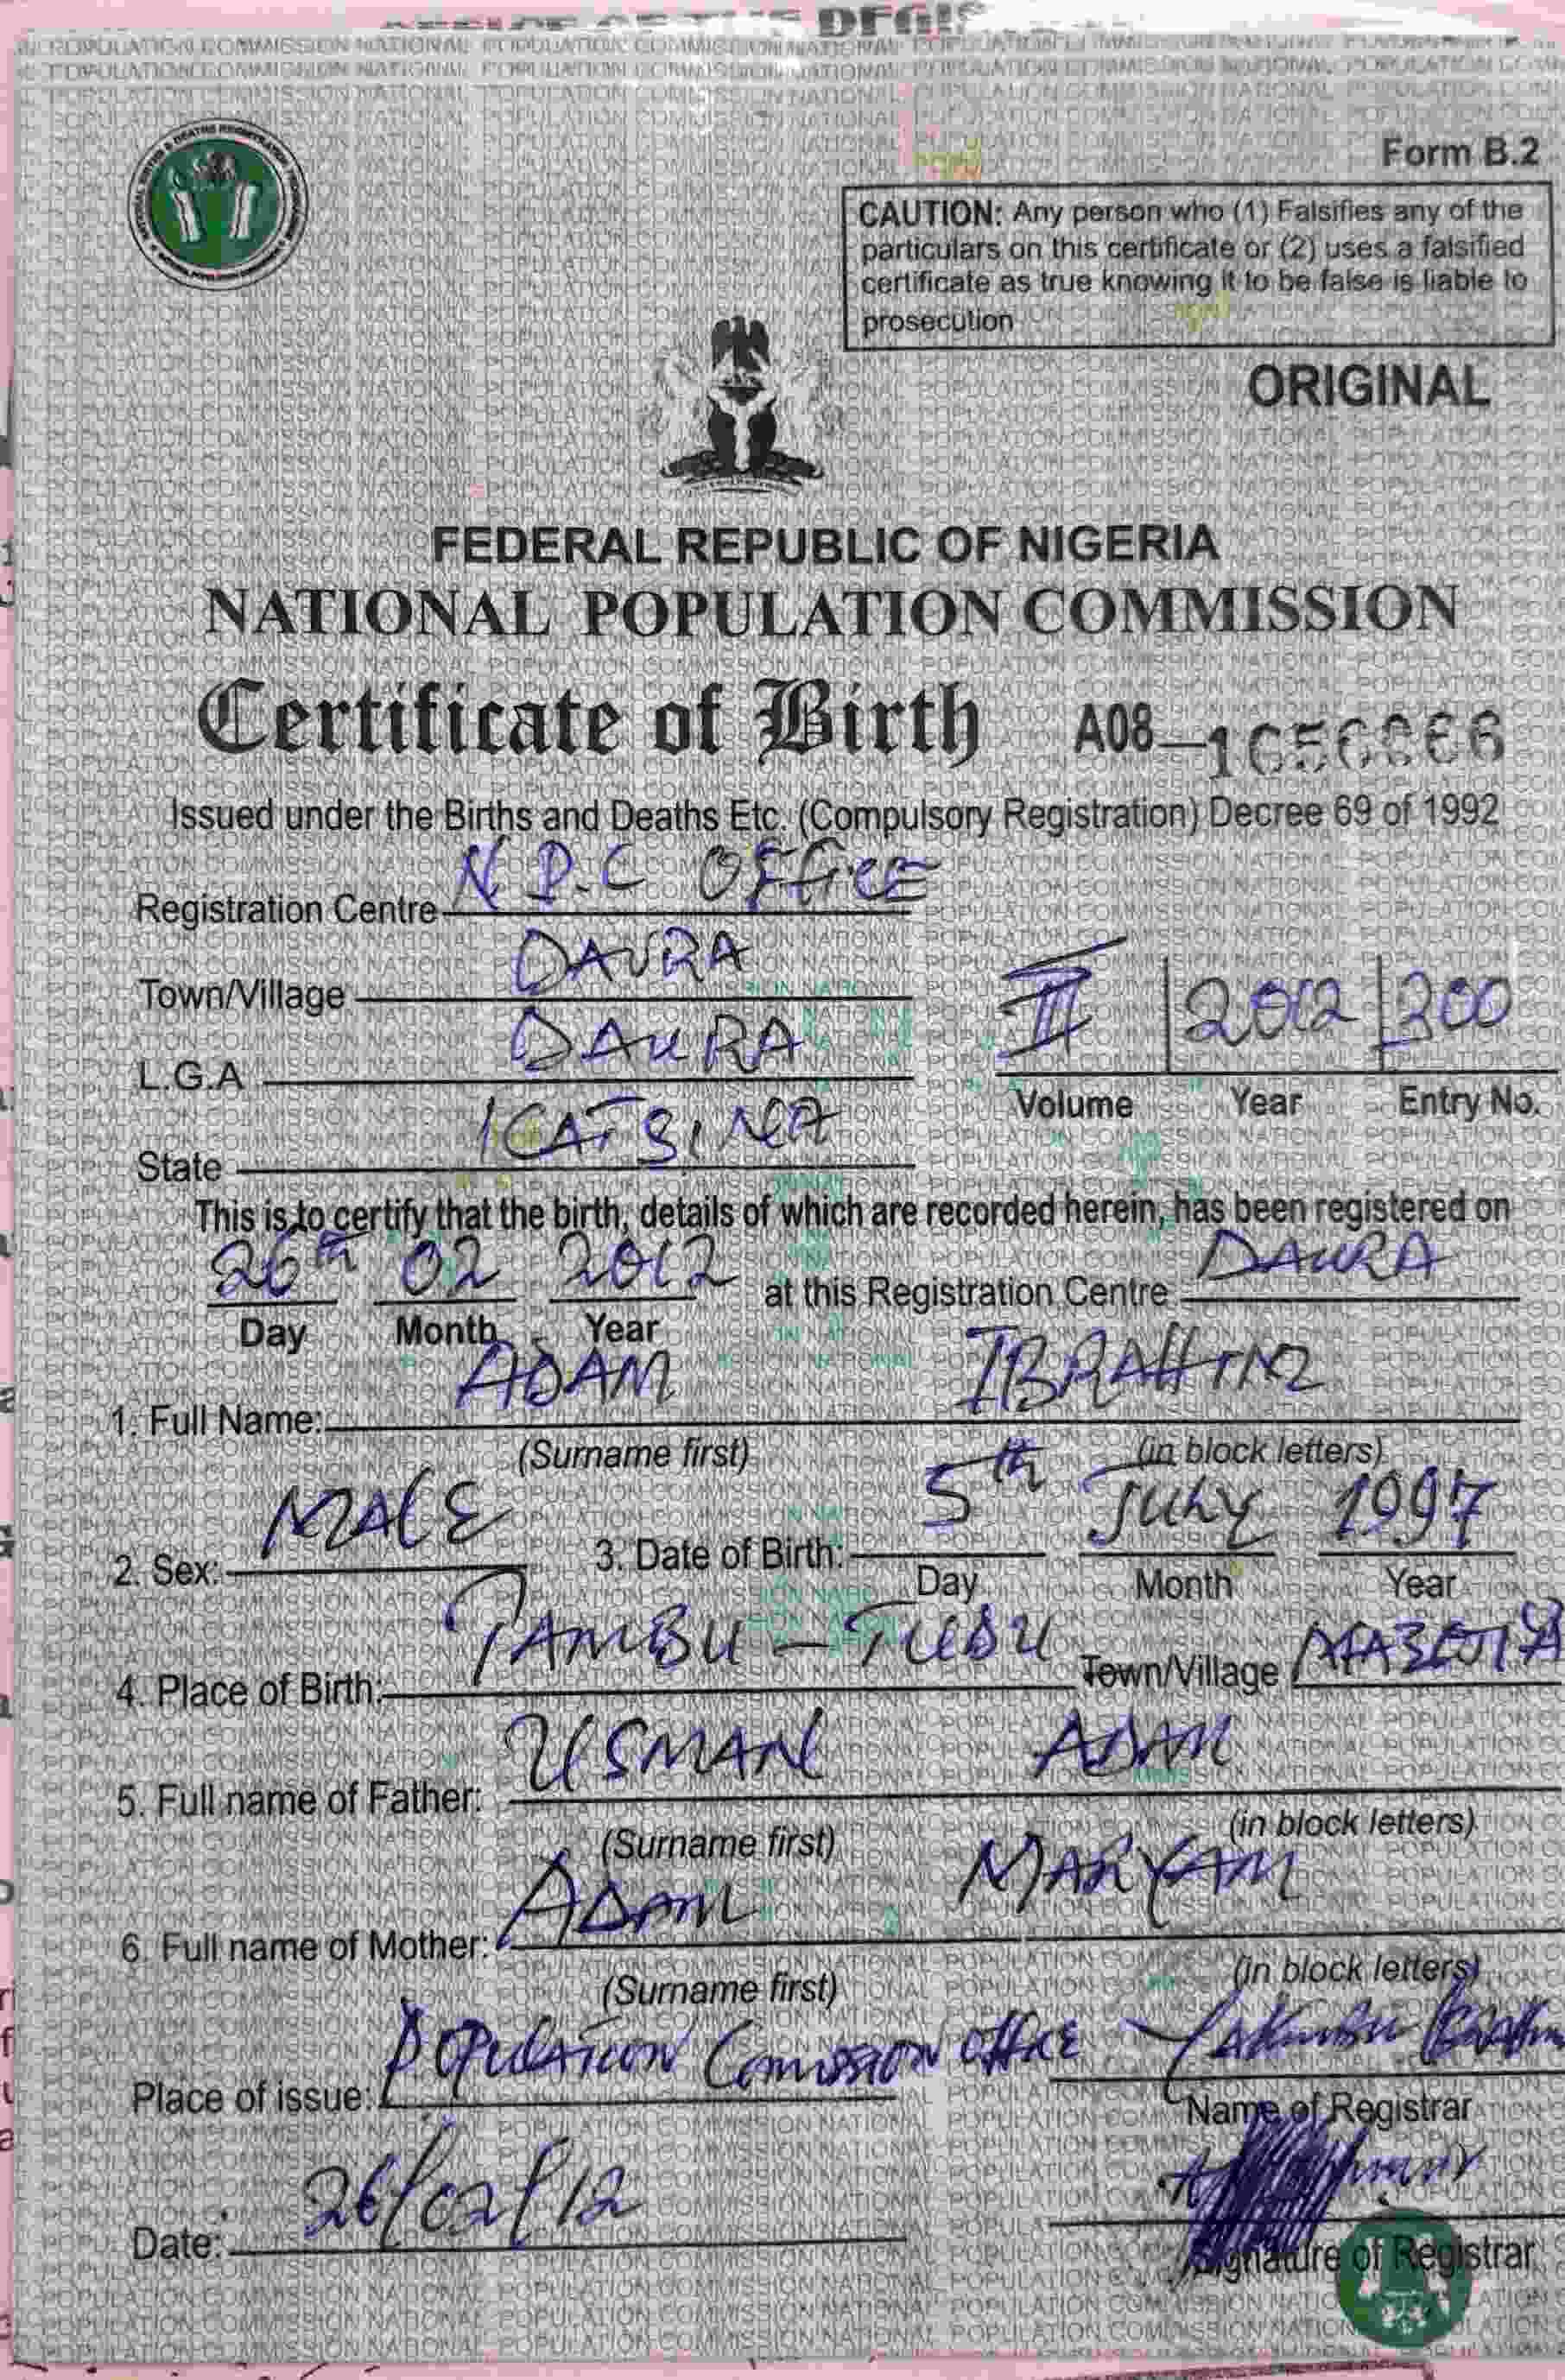 Form B.2
CAUTION: Any person who (1) Falsifies any of the
particulars on this certificate or (2) uses a falsified
certificate as true knowing it to be false is liable to
prosecution
ORIGINAL
FEDERAL REPUBLIC OF NIGERIA
NATIONAL POPULATION COMMISSION
Certificate of Birth A08
Issued under the Births and Deaths Etc. (Compulsory Registration) Decree 69 of 1992
Registration Centre N.P.C OFFICE
Town/Village DAURA
L.G.A DAURA
II 2012 300
Volume Year Entry No.
State KATSINA
This is to certify that the birth, details of which are recorded herein, has been registered on
26th 02 2012 at this Registration Centre DAURA
Day Month Year
1. Full Name: ADAM IBRAHIM
(Surname first) (in block letters)
2. Sex: MALE 3. Date of Birth: 5th July 1997
Day Month Year
4. Place of Birth: TAMBU - TUBU Town/Village
5. Full name of Father: USMAN ADAM
(Surname first) (in block letters)
6. Full name of Mother: ADAM MARYAM
(Surname first) (in block letters)
Place of issue: Population Commission office
Name of Registrar
Date: 26/02/12
Signature of Registrar